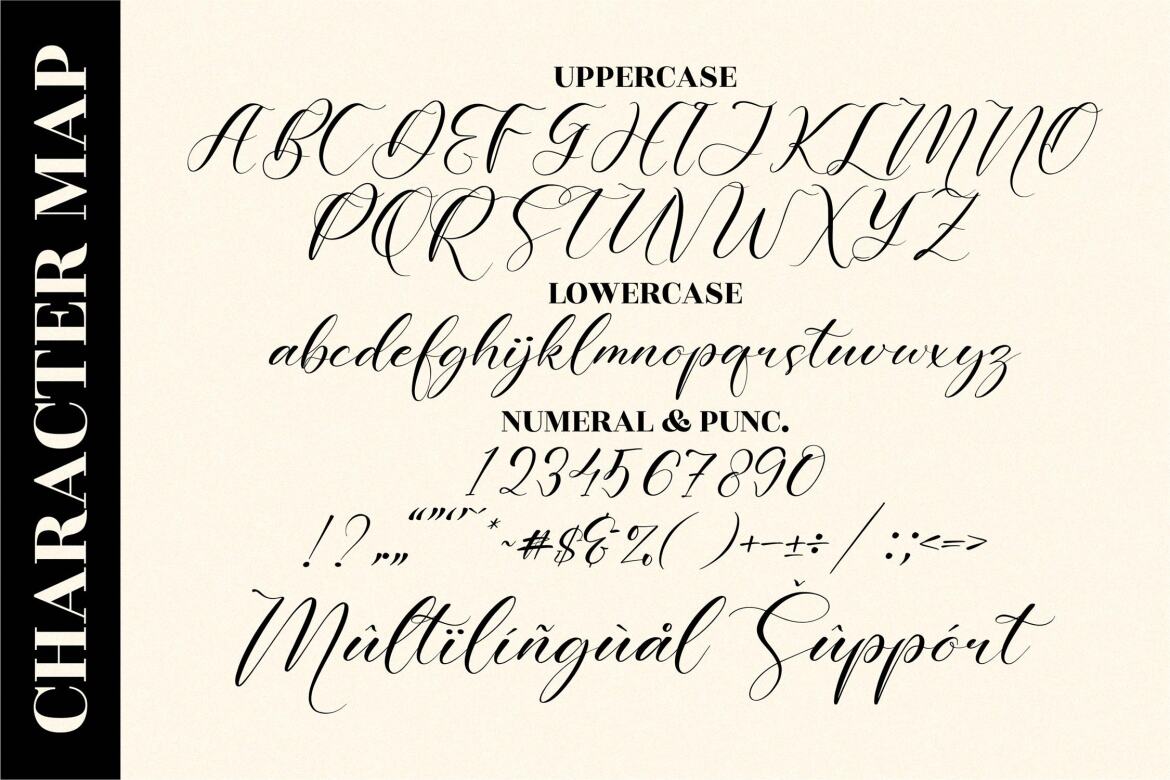 CHARACTER MAP
UPPERCASE
ABCDEFGHIJKLMNO
PQRSTUVWXYZ
LOWERCASE
abcdefghijklmnopqrstuvwxyz
NUMERAL & PUNC.
1234567890
!?,„“”‘’*~#$&%()+−±÷/:;<=>
Mûltïlíñgùål Šûppórt